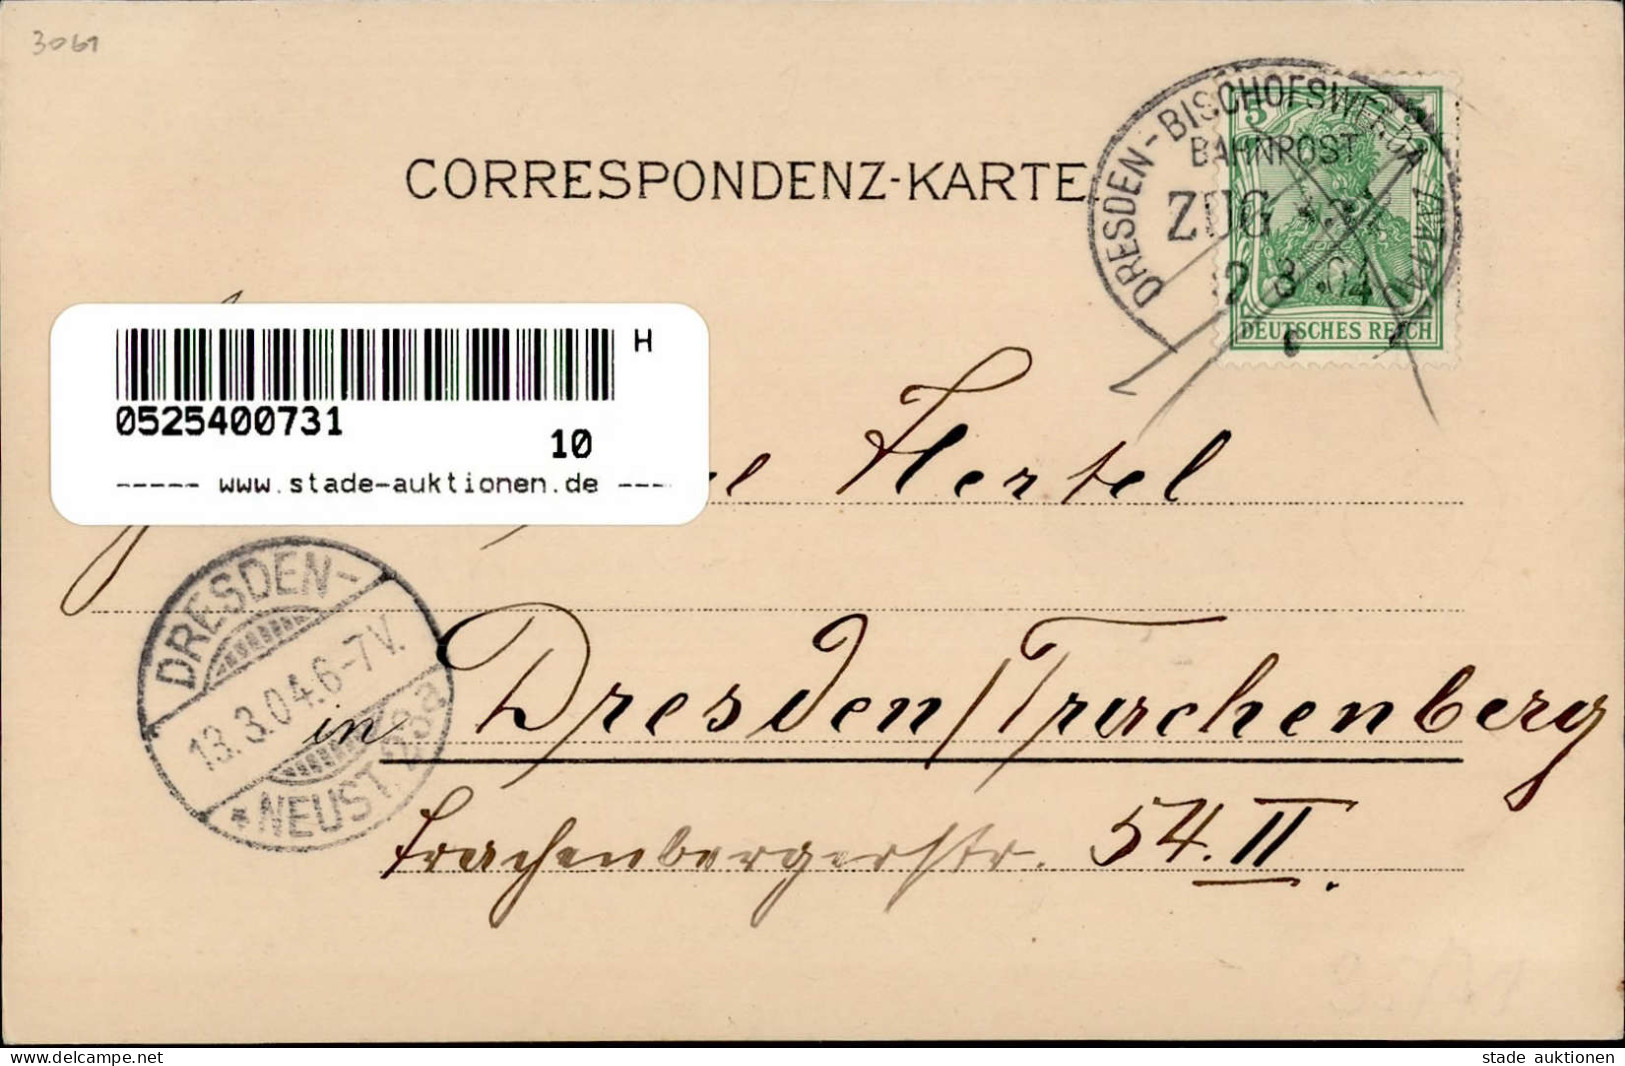 3061
CORRESPONDENZ-KARTE.
DRESDEN-BISCHOFSWERDA
BAHNPOST
ZUG
3.04
5 5
DEUTSCHES REICH
H
0525400731
10
----- www.stade-auktionen.de ---
Hertel
DRESDEN-
13.3.04.6-7V.
*NEUST.
in Dresden/Trachenberg
Trachenbergerstr. 54. II.
delcampe.net
stade auktionen